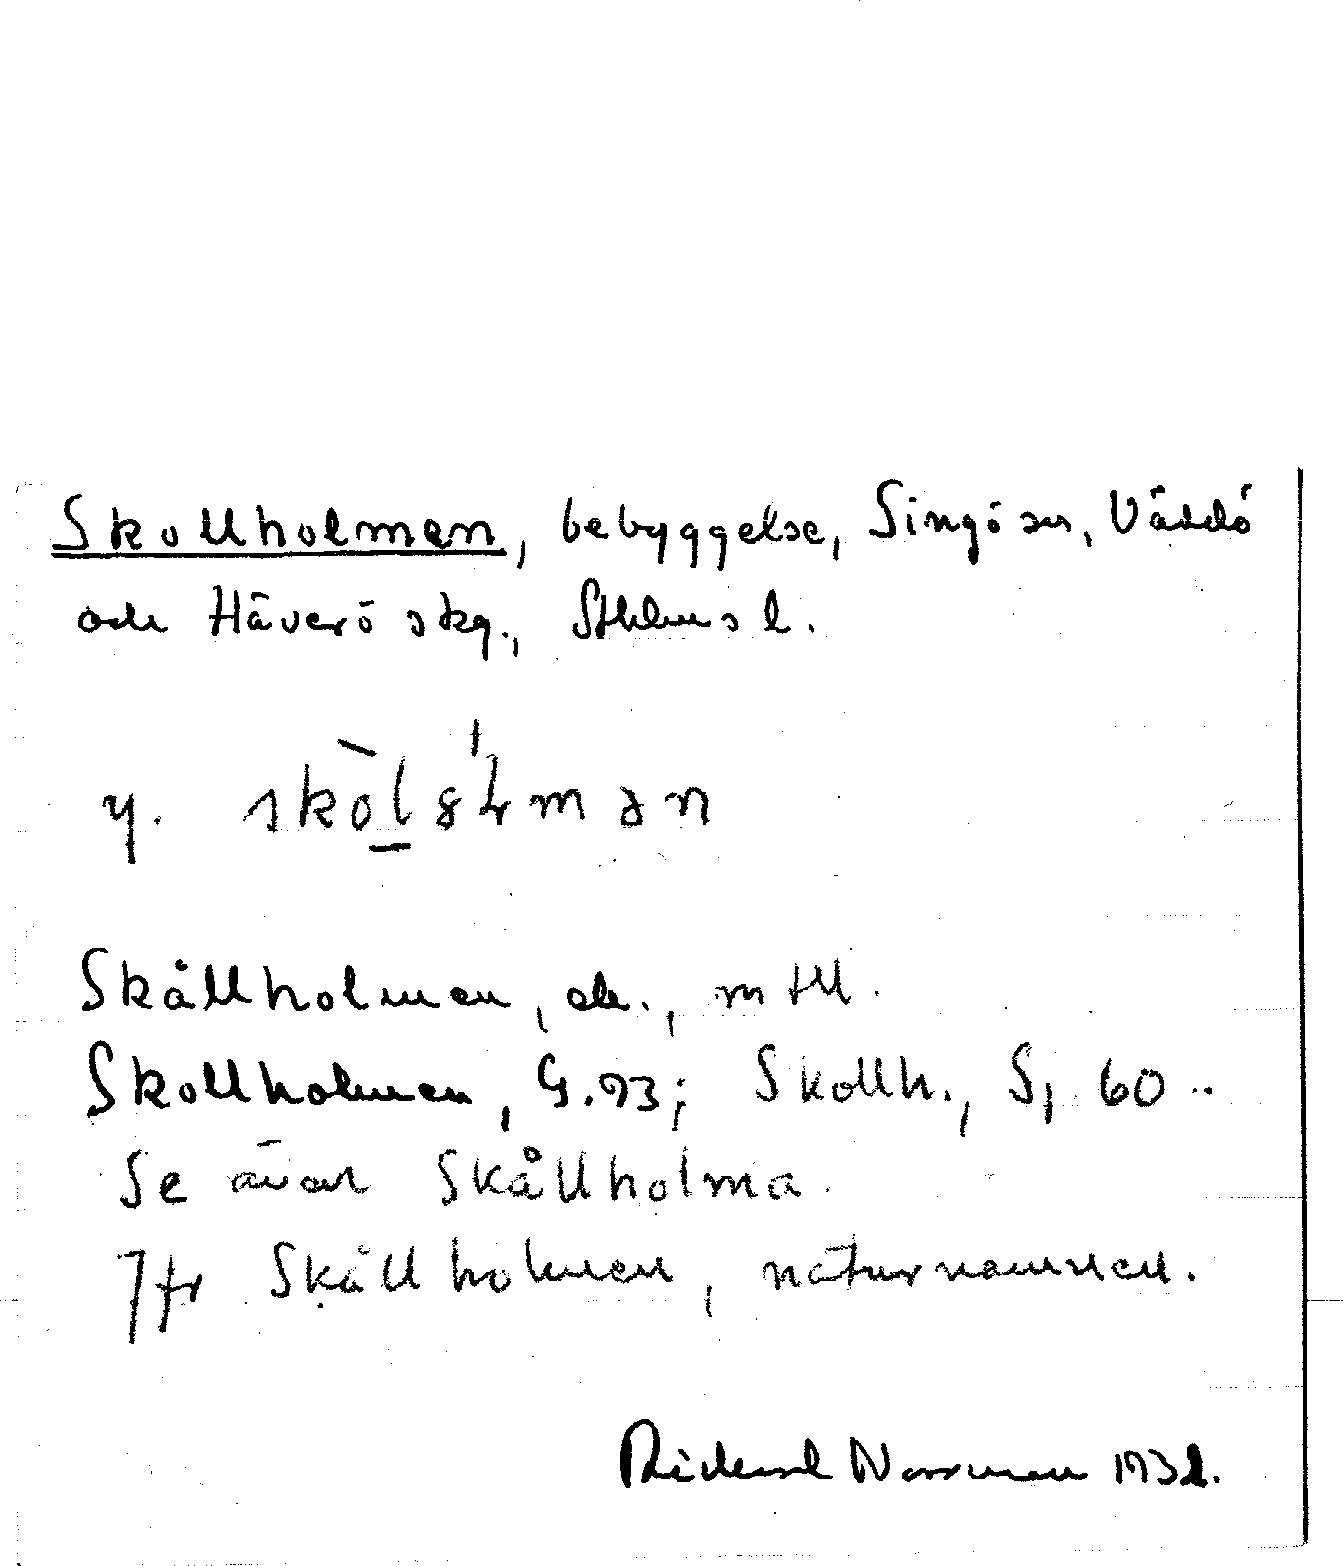 Skollholmen, bebyggelse, Singö sn, Väddö
och Häverö skg., Sthlms l.
y.
Skållholmen, ak., mtll.
Skollholmen, G.93; Skollh., S, 60
Se även Skållholma.
Jfr Skållholmen, naturnamnen.
Rickard Norrman 1932.